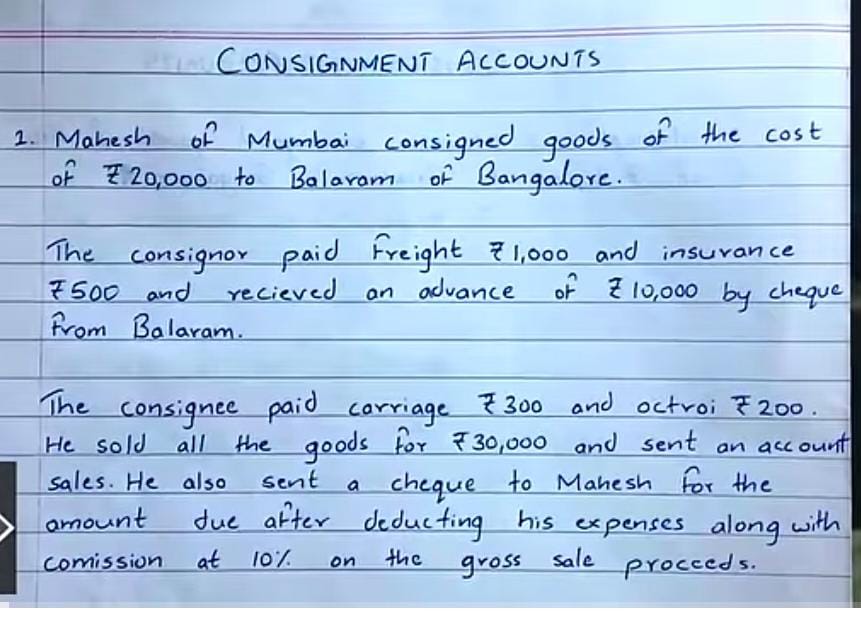 CONSIGNMENT ACCOUNTS
1. Mahesh of Mumbai consigned goods of the cost
of ₹20,000 to Balaram of Bangalore.
The consignor paid freight ₹1,000 and insurance
₹500 and recieved an advance of ₹10,000 by cheque
from Balaram.
The consignee paid carriage ₹300 and octroi ₹200.
He sold all the goods for ₹30,000 and sent an account
sales. He also sent a cheque to Mahesh for the
amount due after deducting his expenses along with
comission at 10% on the gross sale proceeds.